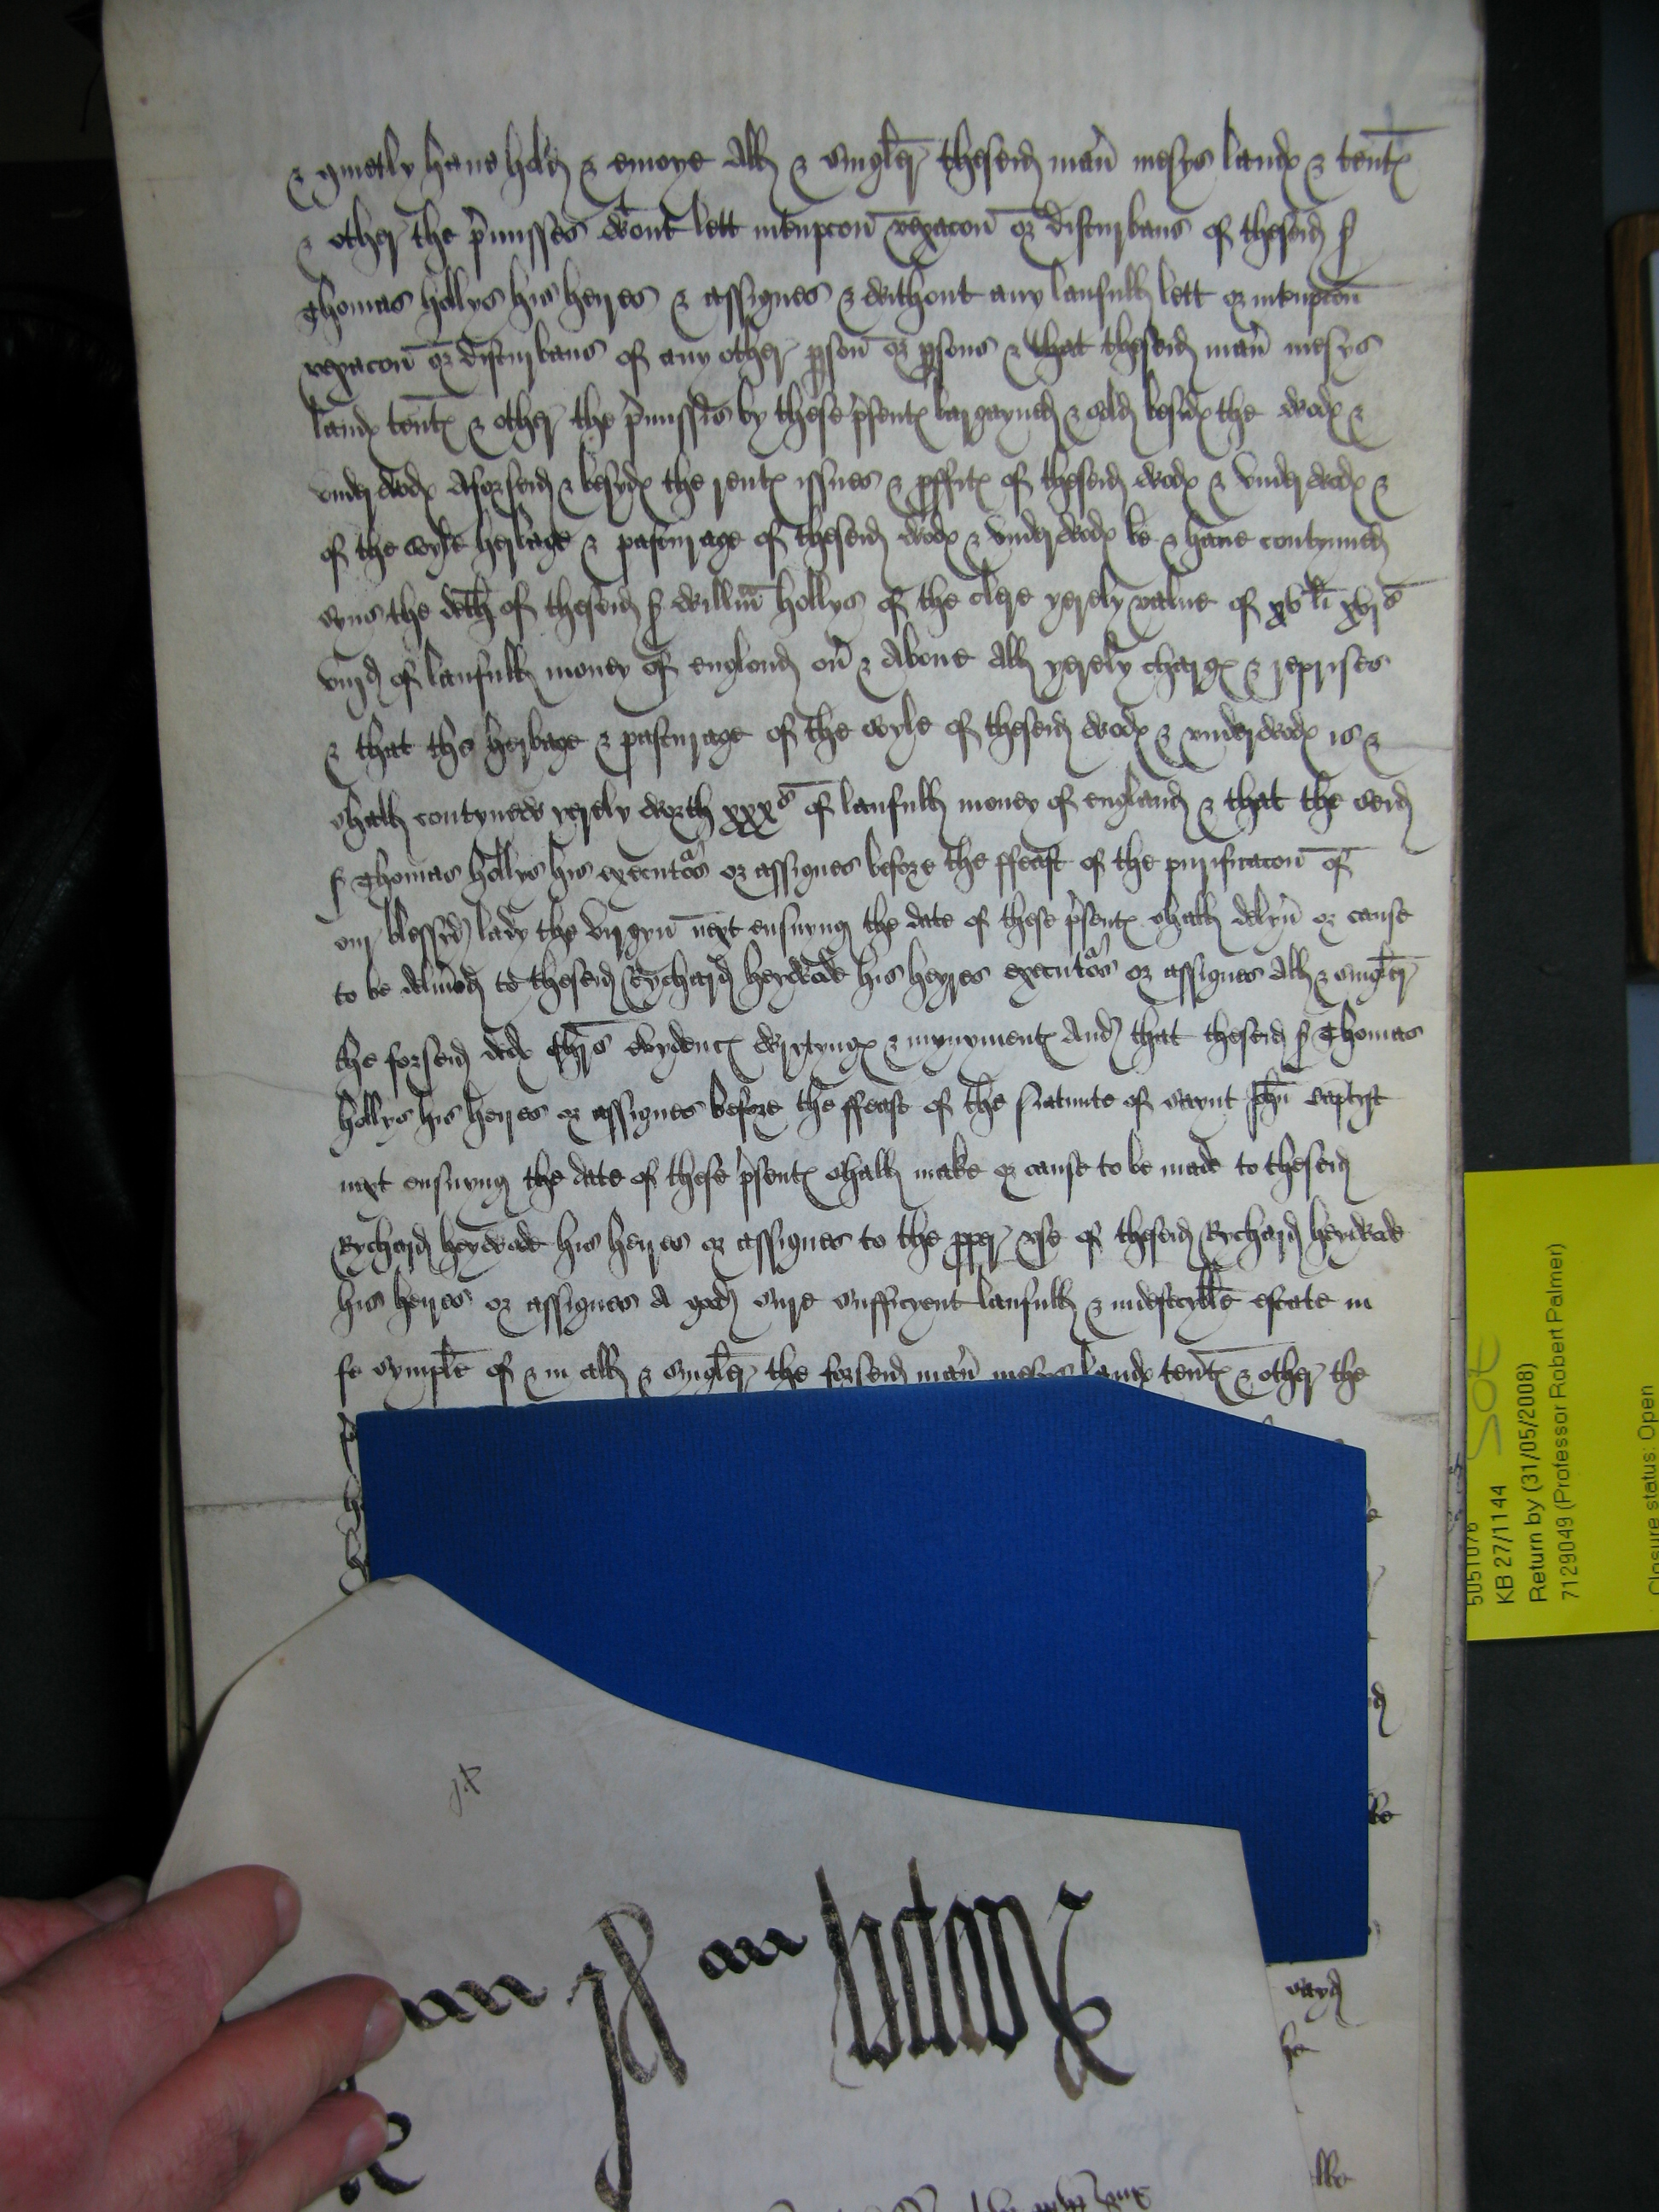 & quietly have hold & enioye all & singler theseid man mesys landes & tentes
& other the p'misses wont lett intrupcon vexacon or disturbans of theseid S
Thomas hollys his heyres & assignes & without any laufull lett or intrupcon
vexacon or disturbans of any other pson or psons & that theseid man mesys
landes tentes & other the p'misses by these p'sentes bargayned & sold besides the wodes &
underwodes aforseid & besydes the rentes issues & pffites of theseid wodes & underwodes &
of the soyle herbage & pasturage of theseid wodes & underwodes be & have contynued
syns the deth of theseid S willm hollys of the clere yerely value of xv li xvj s
viij d of laufull money of englond ov & above all yerely charges & reprises
& that the herbage & pasturage of the soyle of theseid wodes & underwodes is &
shall contynew yerely worth xxx s of laufull money of england & that the seid
S Thomas hollys his executors or assignes before the ffeast of the purificacon of
our blessyd lady the virgyn next ensuyng the date of these p'sentes shall delyv or cause
to be delivied to theseid Rychard heywode his heyres executors or assignes all & singler
the forseid dedes chrs evydences wrytynges & mynymentes And that theseid S Thomas
hollys his heyres or assignes before the ffeast of the natiuite of saynt John baptyst
next ensuyng the date of these p'sentes shall make or cause to be made to theseid
Rychard heywode his heyres or assignes to the pper use of theseid Rychard heywode
his heyres or assignes a good sure sufficyent laufull & indefecyble estate in
fe symple of & in all & singler the forseid man mesys landes tentes & other the
sayd
he
SOE
5051076
KB 27/1144
Return by (31/05/2008)
7129049 (Professor Robert Palmer)
Closure status: Open